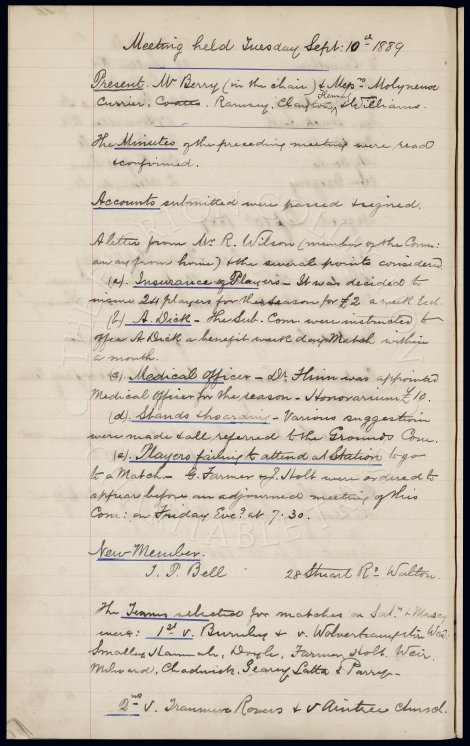 Meeting held Tuesday Sept: 10th 1889
Present. Mr Berry (in the chair) & Messrs Molyneux
Currier, Coates, Ramsey, Clayton, Heming & Williams.
The Minutes of the preceding meeting were read
& confirmed.
Accounts submitted were passed & signed.
A letter from Mr. R. Wilson (member of the Com:
away from home) & the several points considered
(a). Insurance of Players – It was decided to
insure 24 players for the season for £2 a week ted.
(b) A. Dick – The Sub. Com. were instructed to
offer A Dick a benefit week day Match within
a month.
(c). Medical Officer – Dr. Flinn was appointed
Medical Officer for the season – Honorarium £10.
(d). Stands & hoarding – Various suggestions
were made & all referred to the Grounds Com.
(e). Players failing to attend at Station to go
to a Match – G. Farmer & J. Holt were ordered to
appear before an adjourned meeting of this
Com: on Friday Eveg at 7.30.
New Member.
T. P. Bell 28 Stuart Rd Walton.
The Teams selected for matches on Saty & Monday
were: 1st v. Burnley & v. Wolverhampton Wan.
Smalley, Hannah, Doyle, Farmer, Holt, Weir,
Milward, Chadwick, Geary, Latta & Parry –
2nd v. Tranmere Rovers & v Aintree Church.